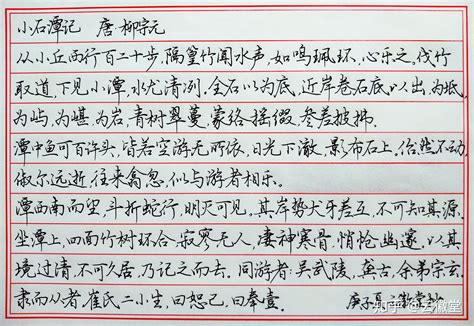 小石潭记 唐·柳宗元
从小丘西行百二十步，隔篁竹闻水声，如鸣珮环，心乐之，伐竹
取道，下见小潭，水尤清冽。全石以为底，近岸卷石底以出，为坻，
为屿，为嵁，为岩，青树翠蔓，蒙络摇缀，参差披拂。
潭中鱼可百许头，皆若空游无所依，日光下澈，影布石上。佁然不动，
俶尔远逝，往来翕忽，似与游者相乐。
潭西南而望，斗折蛇行，明灭可见。其岸势犬牙差互，不可知其源。
坐潭上，四面竹树环合，寂寥无人，凄神寒骨，悄怆幽邃。以其
境过清，不可久居，乃记之而去。同游者：吴武陵，龚古，余弟宗玄。
隶而从者，崔氏二小生，曰恕己，曰奉壹。
知乎